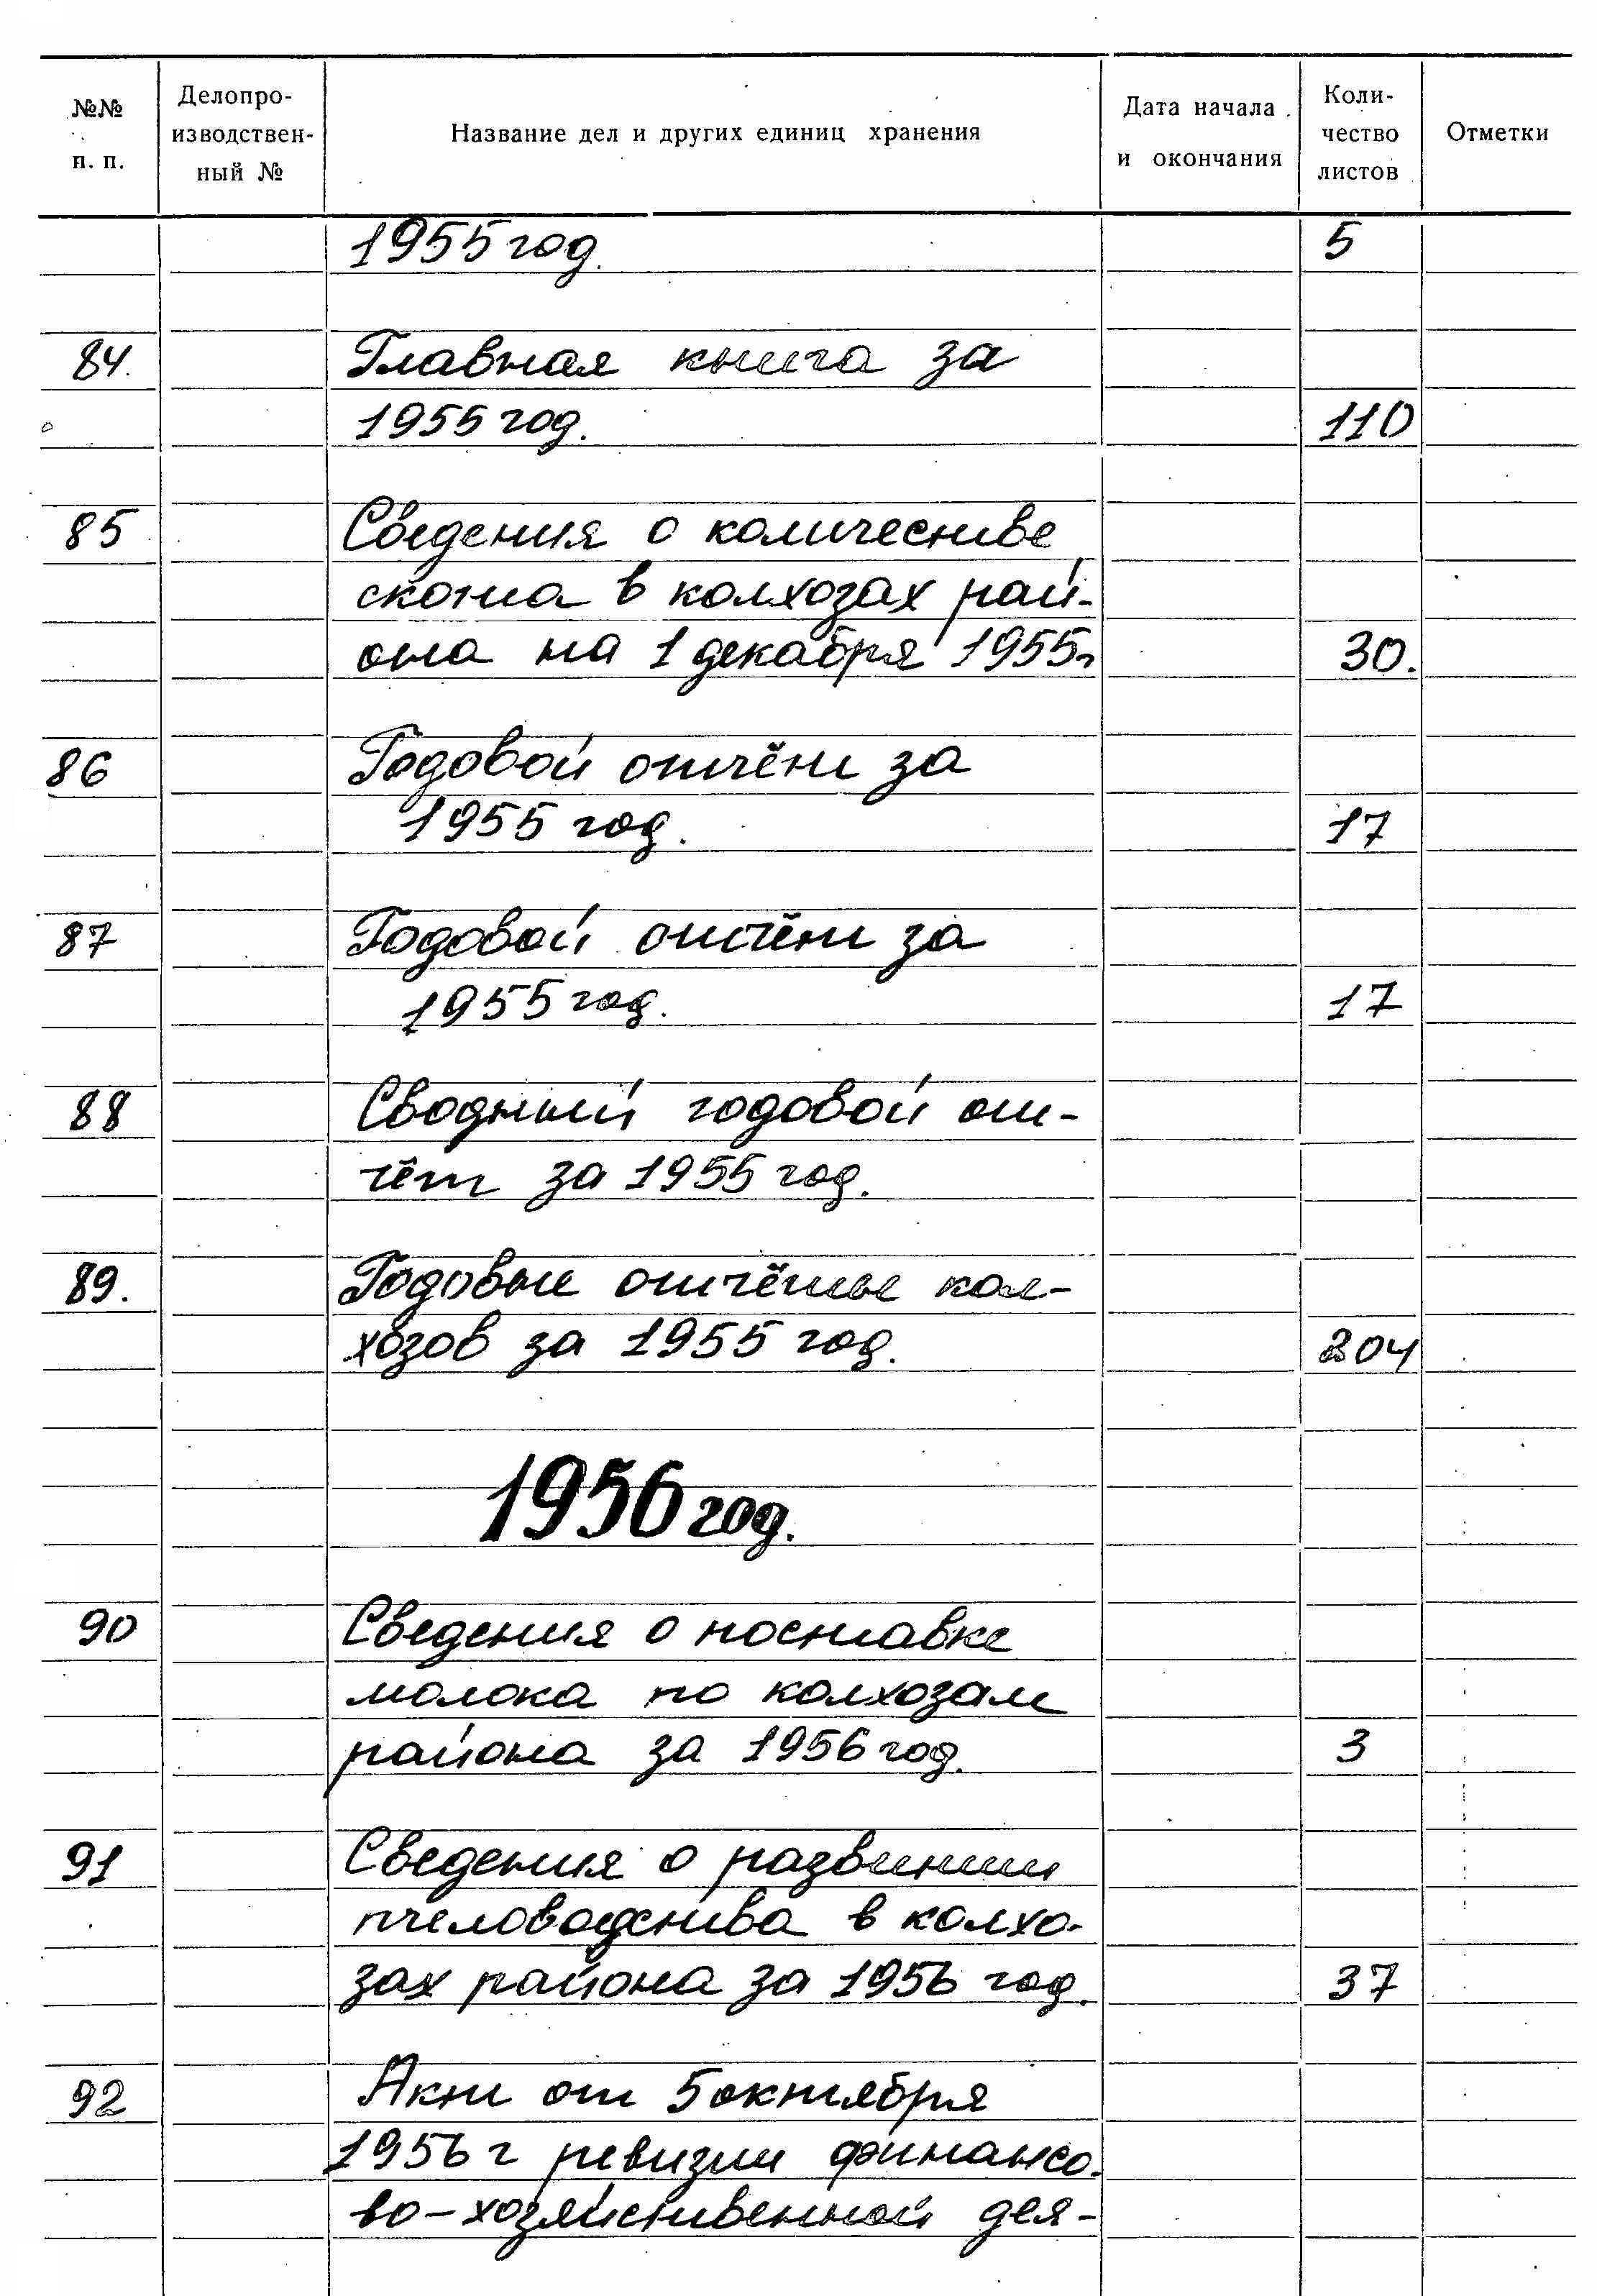 №№ п. п. Делопроизводственный № Название дел и других единиц хранения Дата начала и окончания Количество листов Отметки
1955 год. 5
84. Главная книга за
1955 год. 110
85 Сведения о количестве
скота в колхозах рай-
она на 1 декабря 1955г 30.
86 Годовой отчёт за
1955 год. 17
87 Годовой отчёт за
1955 год. 17
88 Сводный годовой от-
чёт за 1955 год.
89. Годовые отчёты кол-
хозов за 1955 год. 204
1956 год.
90 Сведения о поставке
молока по колхозам
района за 1956 год. 3
91 Сведения о развитии
пчеловодства в колхо-
зах района за 1956 год. 37
92 Акт от 5 октября
1956 г ревизии финансо-
во-хозяйственной дея-